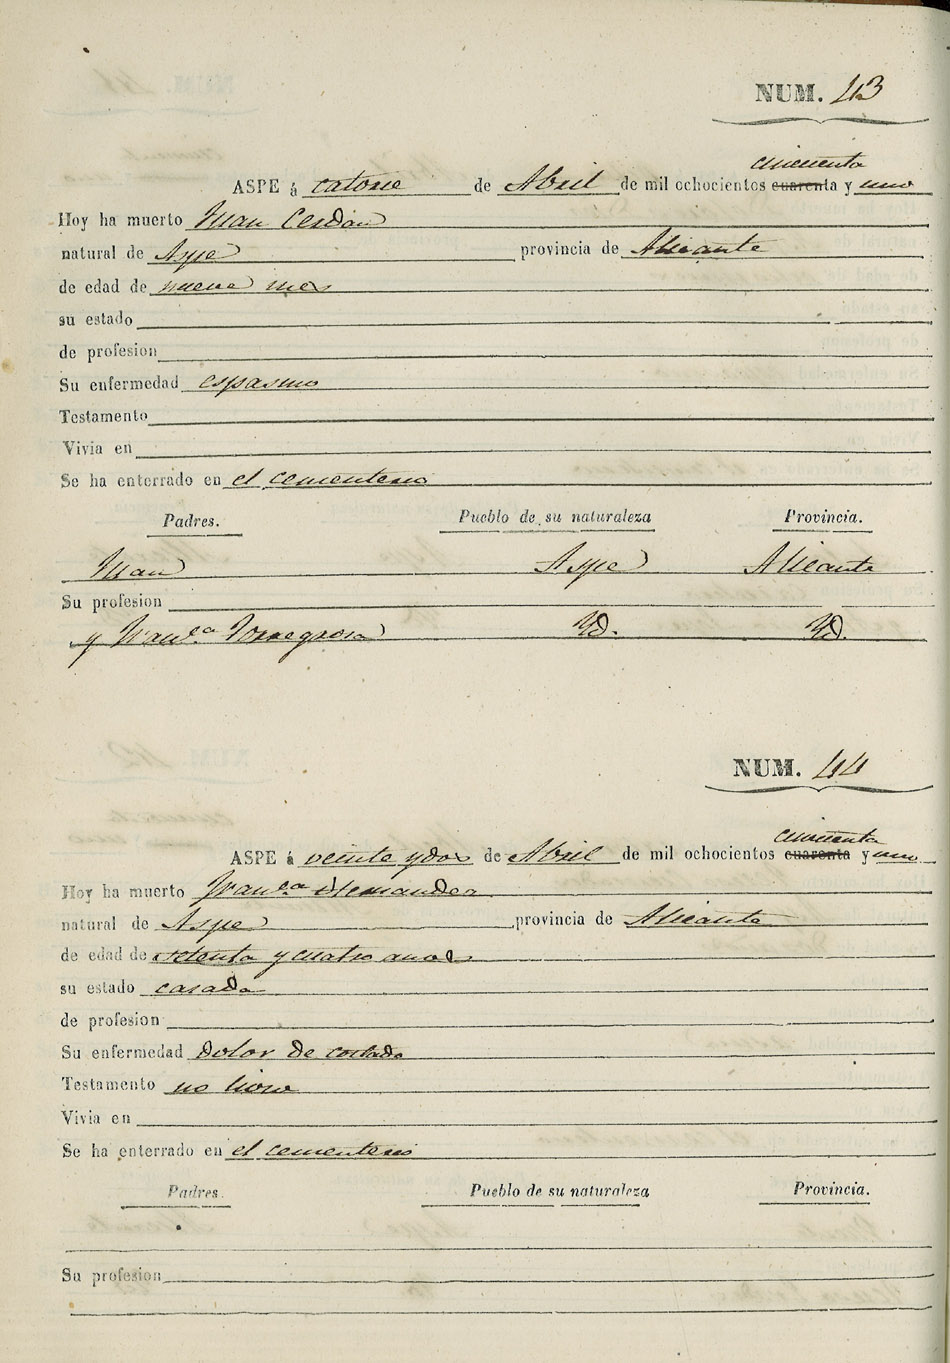 NUM. 43
cincuenta
ASPE á catorse de Abril de mil ochocientos cuarenta y uno
Hoy ha muerto Juan Cerdan
natural de Aspe provincia de Alicante
de edad de nueve mes
su estado
de profesion
Su enfermedad espasmo
Testamento
Vivia en
Se ha enterrado en el cementerio
Padres. Pueblo de su naturaleza Provincia.
Juan Aspe Alicante
Su profesion
y Fran.ca Torregrosa Yd. Yd.
NUM. 44
cincuenta
ASPE á veinte y dos de Abril de mil ochocientos cuarenta y uno
Hoy ha muerto Fran.ca Hernandez
natural de Aspe provincia de Alicante
de edad de setenta y cuatro anos
su estado casada
de profesion
Su enfermedad dolor de costado
Testamento no hiso
Vivia en
Se ha enterrado en el cementerio
Padres. Pueblo de su naturaleza Provincia.
Su profesion